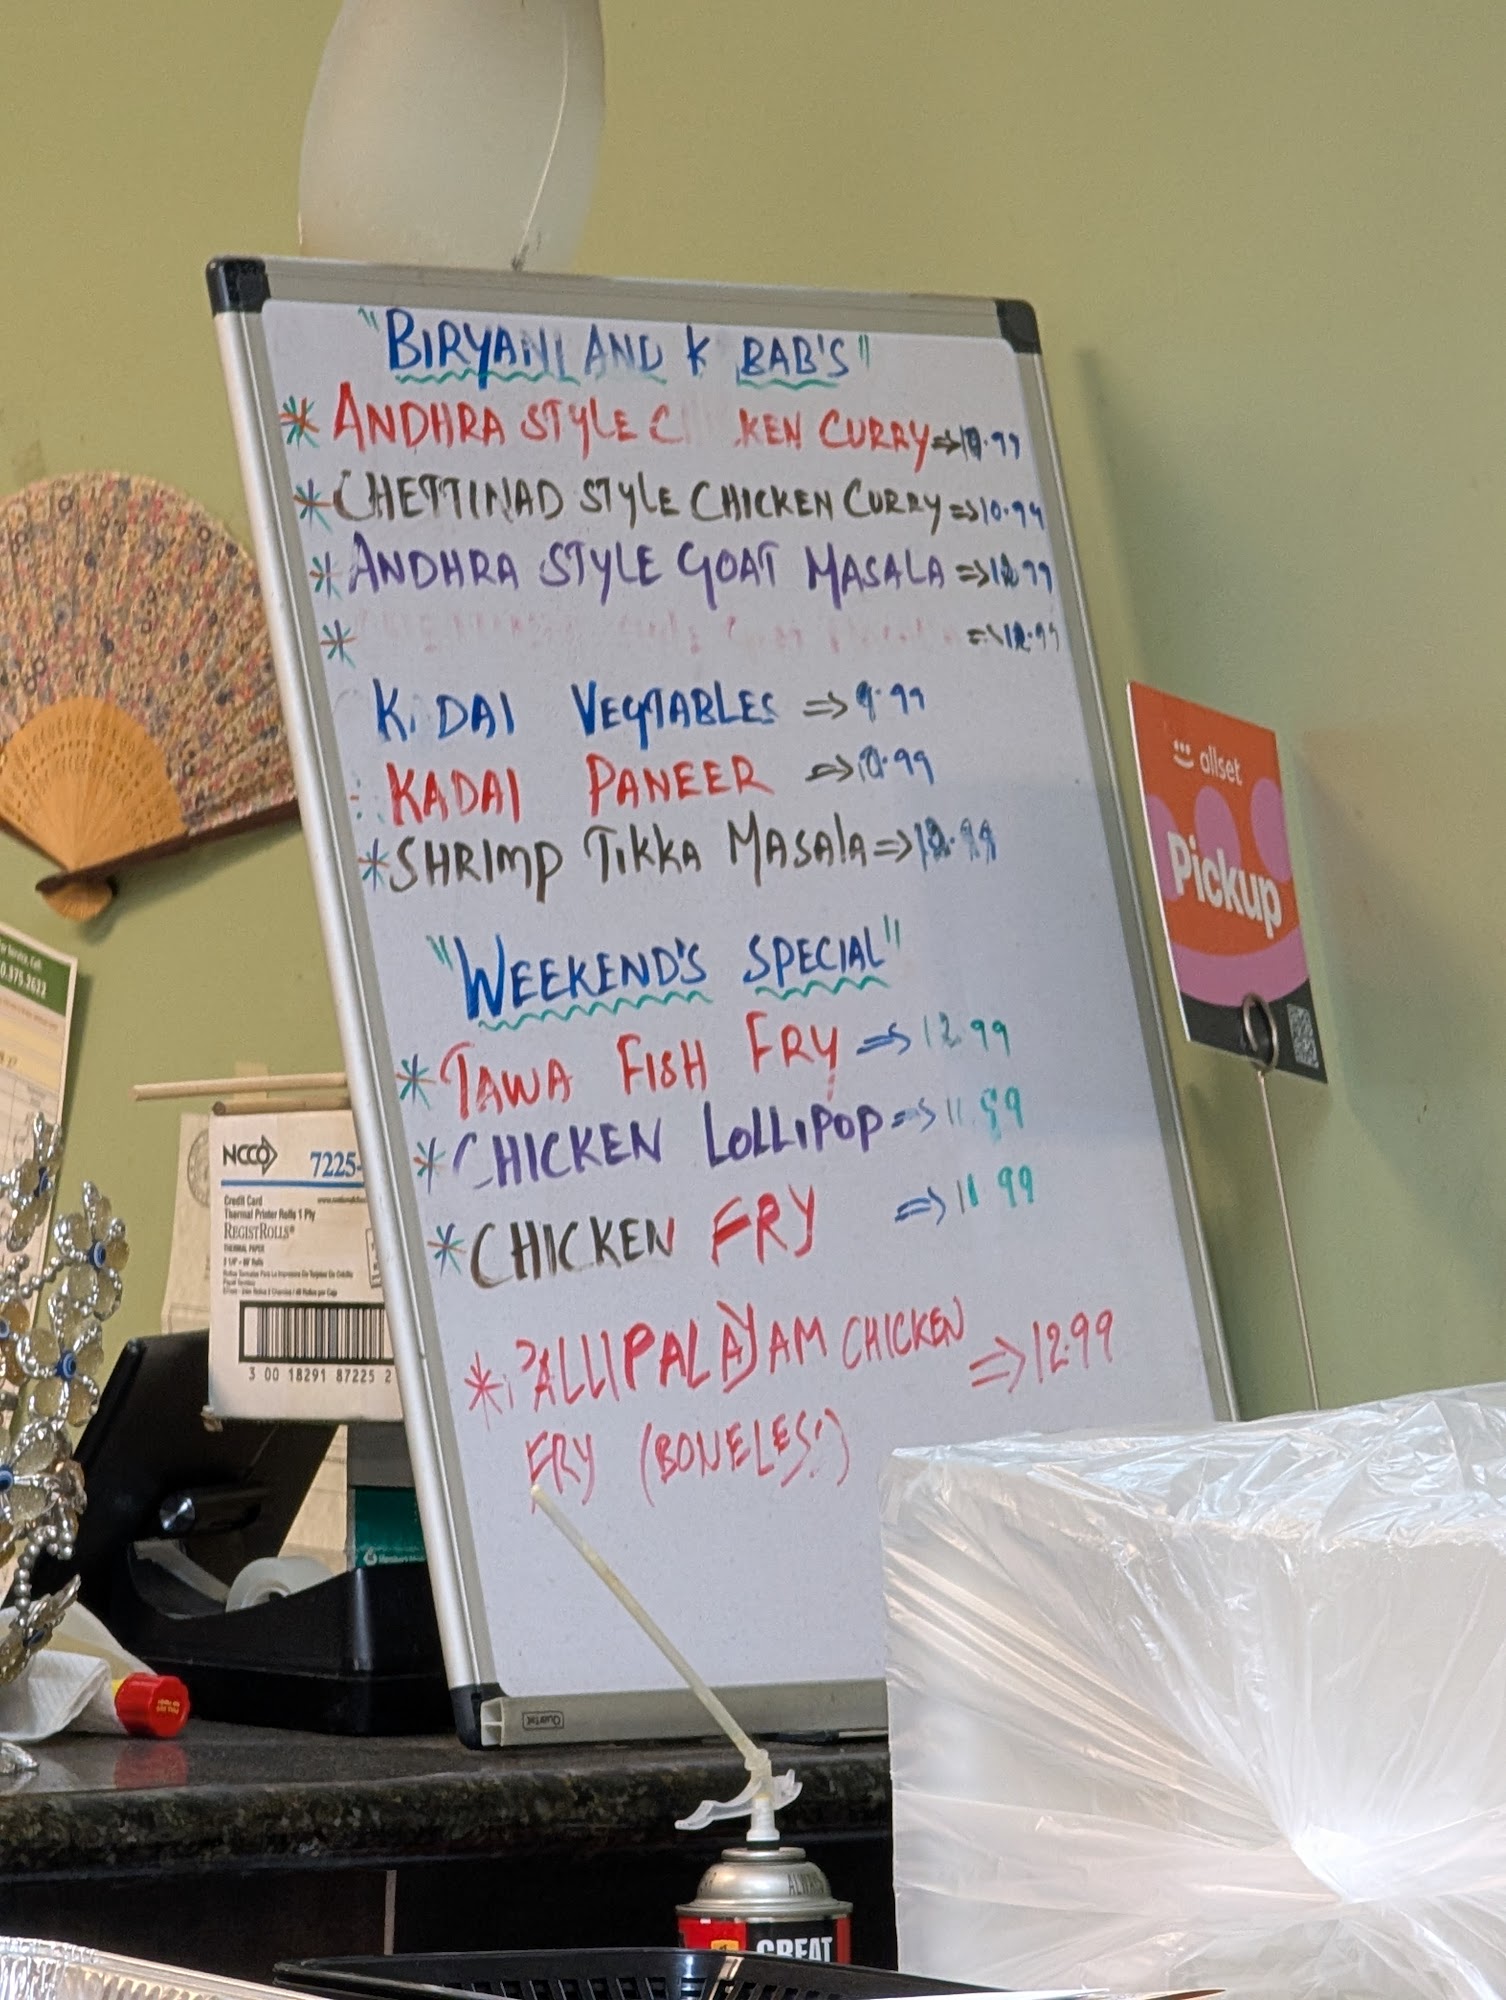 "BIRYANI AND K BAB'S"
* ANDHRA STYLE C KEN CURRY => 10.99
* CHETTINAD STYLE CHICKEN CURRY => 10.99
* ANDHRA STYLE GOAT MASALA => 12.99
* => 12.99
K DAI VEGTABLES => 9.99
KADAI PANEER => 10.99
* SHRIMP TIKKA MASALA => 12.99
"WEEKEND'S SPECIAL"
* TAWA FISH FRY => 12.99
* CHICKEN LOLLIPOP => 11.99
* CHICKEN FRY => 11.99
* PALLIPALAYAM CHICKEN => 12.99
FRY (BONELESS)
Quartet
allset
Pickup
NCCO 7225-
Credit Card
Thermal Printer Rolls 1 Ply
REGISTROLLS®
THERMAL PAPER
3 00 18291 87225 2
0.375.2622
ALWAYS
GREAT